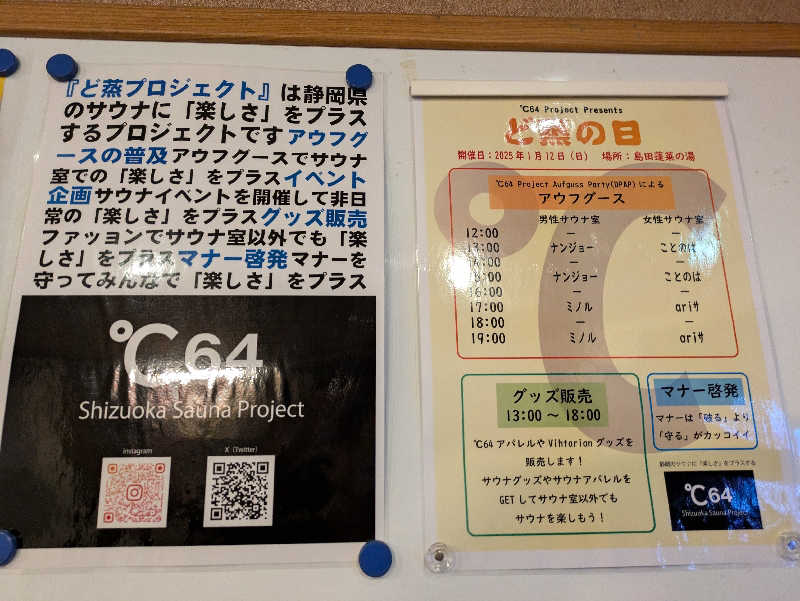 『ど蒸プロジェクト』は静岡県
のサウナに「楽しさ」をプラス
するプロジェクトですアウフグ
ースの普及アウフグースでサウナ
室での「楽しさ」をプラスイベント
企画サウナイベントを開催して非日
常の「楽しさ」をプラスグッズ販売
ファッションでサウナ室以外でも「楽
しさ」をプラスマナー啓発マナーを
守ってみんなで「楽しさ」をプラス
℃64
Shizuoka Sauna Project
instagram
X（Twitter）
℃64 Project Presents
ど蒸の日
開催日：2025年1月12日（日） 場所：島田蓬莱の湯
℃64 Project Aufguss Party(DPAP)による
アウフグース
男性サウナ室 女性サウナ室
12:00 ー ー
13:00 ナンジョー ことのは
ー ー
ナンジョー ことのは
16:00 ー ー
17:00 ミノル ariサ
18:00 ー ー
19:00 ミノル ariサ
グッズ販売
13:00 〜 18:00
℃64 アパレルや Vihtarian グッズを
販売します！
サウナグッズやサウナアパレルを
GET してサウナ室以外でも
サウナを楽しもう！
マナー啓発
マナーは「破る」より
「守る」がカッコイイ
静岡のサウナに「楽しさ」をプラスする
℃64
Shizuoka Sauna Project